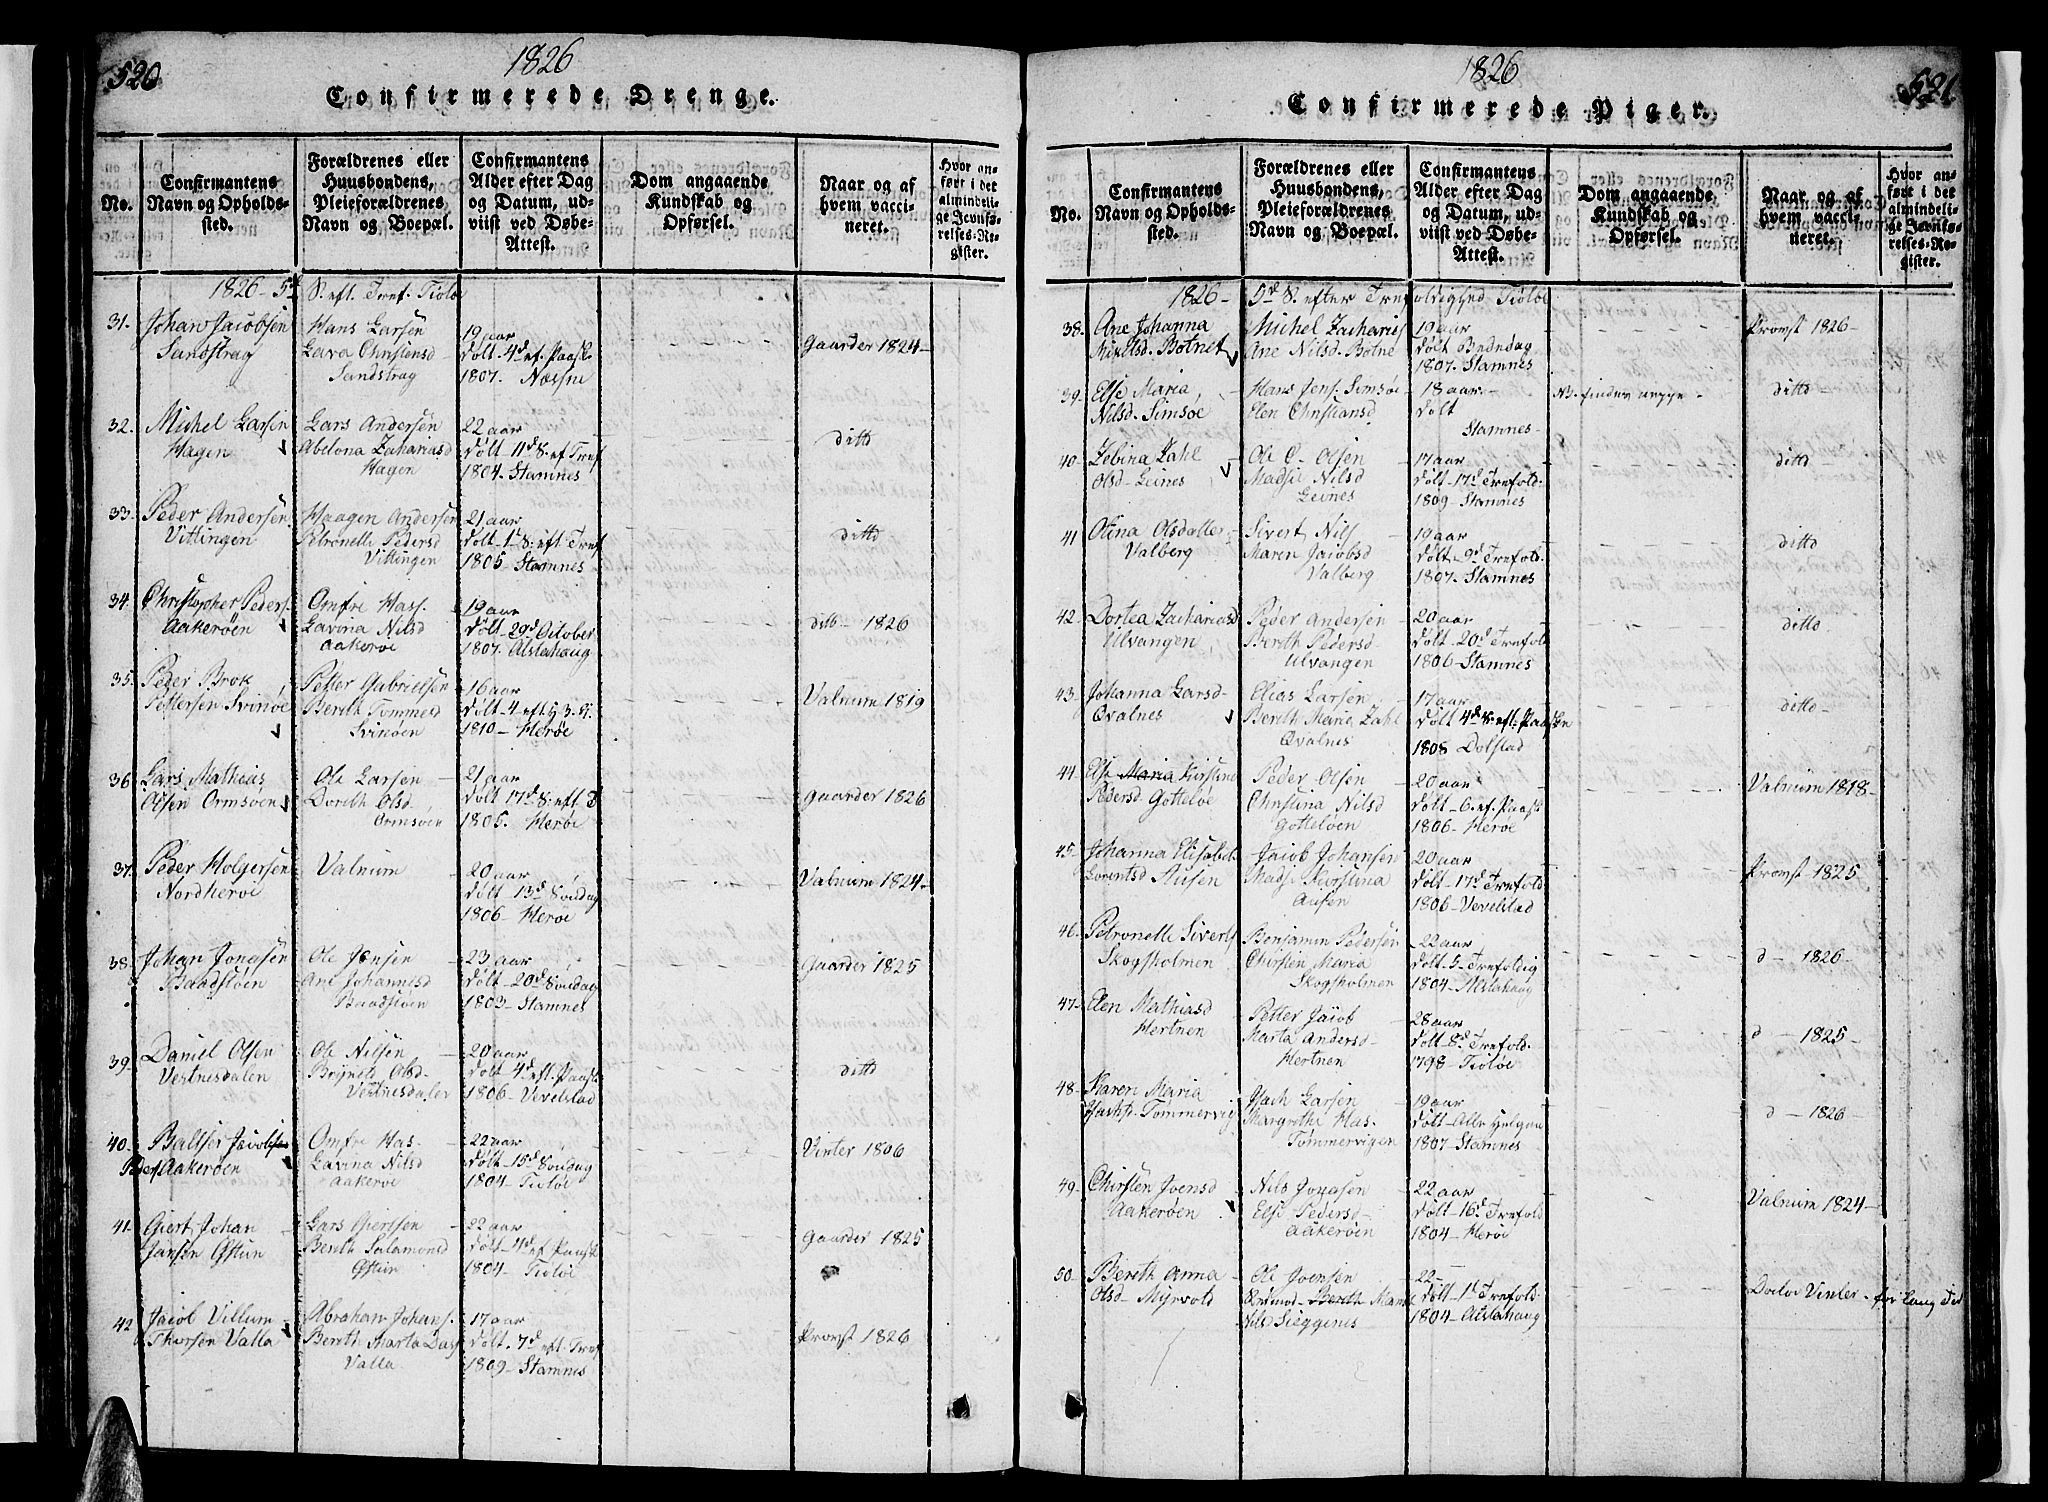 520
1826
Confirmerede Drenge.
No.
Confirmantens
Navn og Opholds-
sted.
Forældrenes eller
Huusbondens,
Pleieforældrenes
Navn og Boepæl.
Confirmantens
Alder efter Dag
og Datum, ud-
viist ved Døbe-
Attest.
Dom angaaende
Kundskab og
Opførsel.
Naar og af
hvem vacci-
neret.
Hvor an-
ført i det
almindeli-
ge Jevnfø-
relses-Re-
gister.
1826 - 5d S. eft. Tref. Tiøtø
31. Johan Jacobsen
Sandstrag
Hans Larsen
Lava Christensd
Sandstrag
19 aar
døbt 4d ef. Paask
1807. Næssne
Gaarder 1824
32. Michel Larsen
Hagen
Lars Andersen
Abelona Zachariasd
Hagen
22 aar
døbt 11d S. ef Tref
1804 - Stamnes
ditto
33. Peder Andersen
Vittingen
Haagen Andersen
Petronelle Pedersd
Vittingen
21 aar
døbt 1d S. eft Tref
1805 - Stamnes
ditto
34. Christopher Peders.
Aakerøen
Omfre Hass.
Lavina Nilsd
Aakerøe
19 aar
døbt 29d October
1807. Alstahaug
ditto - 1826
35. Peder Brok
Pettersen Svinøe
Petter Gabrielsen
Bereth Tommesd
Svinøen
16 aar
døbt 4 eft H 3 K.
1810 - Herøe
Valnum 1819
36. Lars Mathias
Olsen Ormsøen
Ole Larsen
Doreth Olsd
Ormsøen
21 aar
døbt 17d S. eft T
1805. Herøe
Gaarder 1826
37. Peder Holgersen
Nordherøe
Valnum
20 aar
døbt 13d Søndag
1806 - Herøe
Valnum 1824
38. Johan Jonasen
Baadsføen
Ole Jensen
Ane Johannesd
Baadsføen
23 aar
døbt 20d Søndag
1803 - Stamnes
Gaarder 1825
39. Daniel Olsen
Vestnesdalen
Ole Nilsen
Brynete Olsd
Vestnesdalen
20 aar
døbt 4d eft. Paask
1806 - Vevelstad
ditto
40. Baltser Jacobsen
Peders Aakerøen
Omfre Has.
Lavina Nilsd
Aakerøe
22 aar
døbt 15d Søndag
1804 - Tiøtøe
Vinter 1806
41. Giert Johan
Jansen Øftun
Lars Giertsen
Bereth Salamonsd
Øftun
22 aar
døbt 4d ef Paask
1804 - Tiøtøe
Gaarder 1825
42 Jacob Villum
Thorsen Valla
Abraham Johans.
Bereth Marta Dass
Valla
17 aar
døbt 7d eft. Tref
1809 - Stamnes
Promst 1826
521
1826
Confirmerede Piger.
No.
Confirmantens
Navn og Opholds-
sted.
Forældrenes eller
Huusbondens,
Pleieforældrenes
Navn og Boepæl.
Confirmantens
Alder efter Dag
og Datum, ud-
viist ved Døbe-
Attest.
Dom angaaende
Kundskab og
Opførsel.
Naar og af
hvem vacci-
neret.
Hvor an-
ført i det
almindeli-
ge Jevnfø-
relses-Re-
gister.
1826 - 5d S. efter Trefoldighed Tiøtøe
38. Ane Johanna
Mikelsd. Botnet
Michel Zacharies
Ane Nilsd. Botne
19 aar
døbt Bededag
1807. Stamnes
Promst 1826
39. Else Maria
Nilsd. Simsøe
Hans Jens. Simsøe
Elen Christiansd
18 aar
døbt
Stamnes
NB. findes ikke
ditto
40. Zebina Zahl
Olsd - Leines
Ole O. Olsen
Madsie Nilsd
Leines
17 aar
døbt 17d Trefold.
1809 - Stamnes
ditto
41 Olina Olsdatter
Valberg
Sivert Nils
Maren Jacobsd
Valberg
19 aar
døbt 9d Trefold.
1807 - Stamnes
ditto
42. Dortea Zachariasd
Ulvangen
Peder Andersen
Bereth Pedersd
Ulvangen
20 aar
døbt 20d Trefold
1806 - Stamnes
ditto
43. Johanna Larsd
Qvalnes
Elias Larsen
Bereth Marie Zahl
Qvalnes
17 aar
døbt 4d S. eft. Paaske
1808 Dolstad
ditto
44. Else Maria Kirstine
Pedersd Gotteløe
Peder Olsen
Christina Nilsd
Gotteløen
20 aar
døbt 6. ef. Paask
1806 - Herøe
Valnum 1818
45. Johanna Elisabet
Lorentsd Ausen
Jacob Johansen
Madse Kirstina
Ausen
20 aar
døbt 17d Trefold
1806 - Vevelstad
Promst 1825
46. Petronelle Siverts
Skogsholmen
Benjamin Pedersen
Chirsten Maria
Skogsholmen
22 aar
døbt 5 - Trefoldig
1804 - Alstahaug
d - 1826
47. Elen Mathiasd
Hertnen
Petter Jacob
Marta Andersd
Hertnen
28 aar
døbt 8d Trefold.
1798 - Tiøtøe
d - 1825
48. Karen Maria
Isachs. Tømmervig
Isach Larsen
Margrethe Has.
Tømmervigen
19 aar
døbt Alle Helgen
1807 - Stamnes
d - 1826
49. Chirsten Joensd
Aakerøen
Nils Jonasen
Else Pedersd
Aakerøen
22 aar
døbt 16d Trefold
1804 - Herøe
Valnum 1824
50. Bereth Anna
Olsd - Myrvold
Ole Joensen
Bereth
Nils Sieggenes
22 -
døbt 1d Trefold.
1804 - Alstahaug
Doctor Vinter - for lang Tid